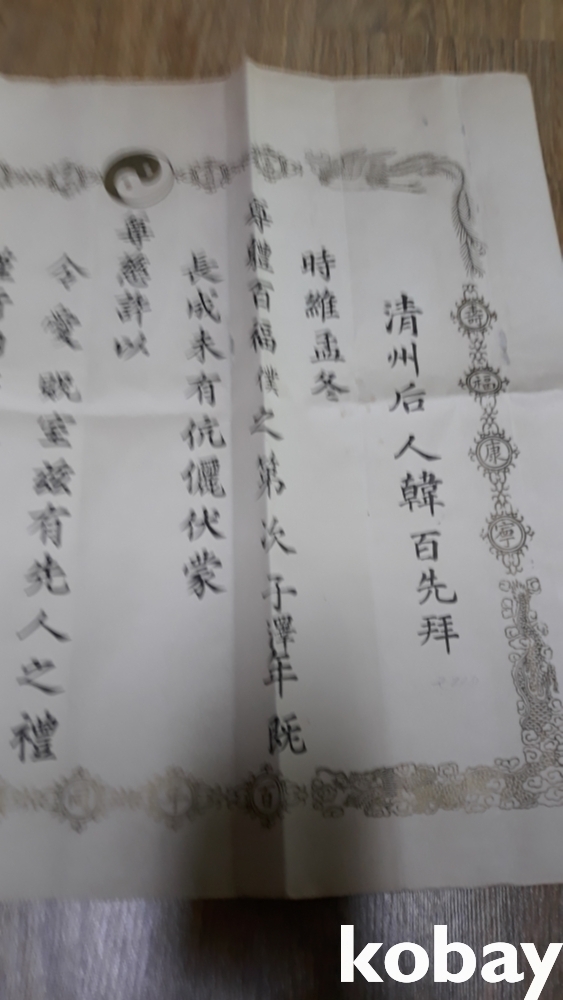 清州后人韓百先拜
時維孟冬
尊體百福僕之第次子澤年既
長成未有伉儷伏蒙
尊慈許以
令愛貺室茲有先人之禮
謹行
壽
福
康
寧
kobay